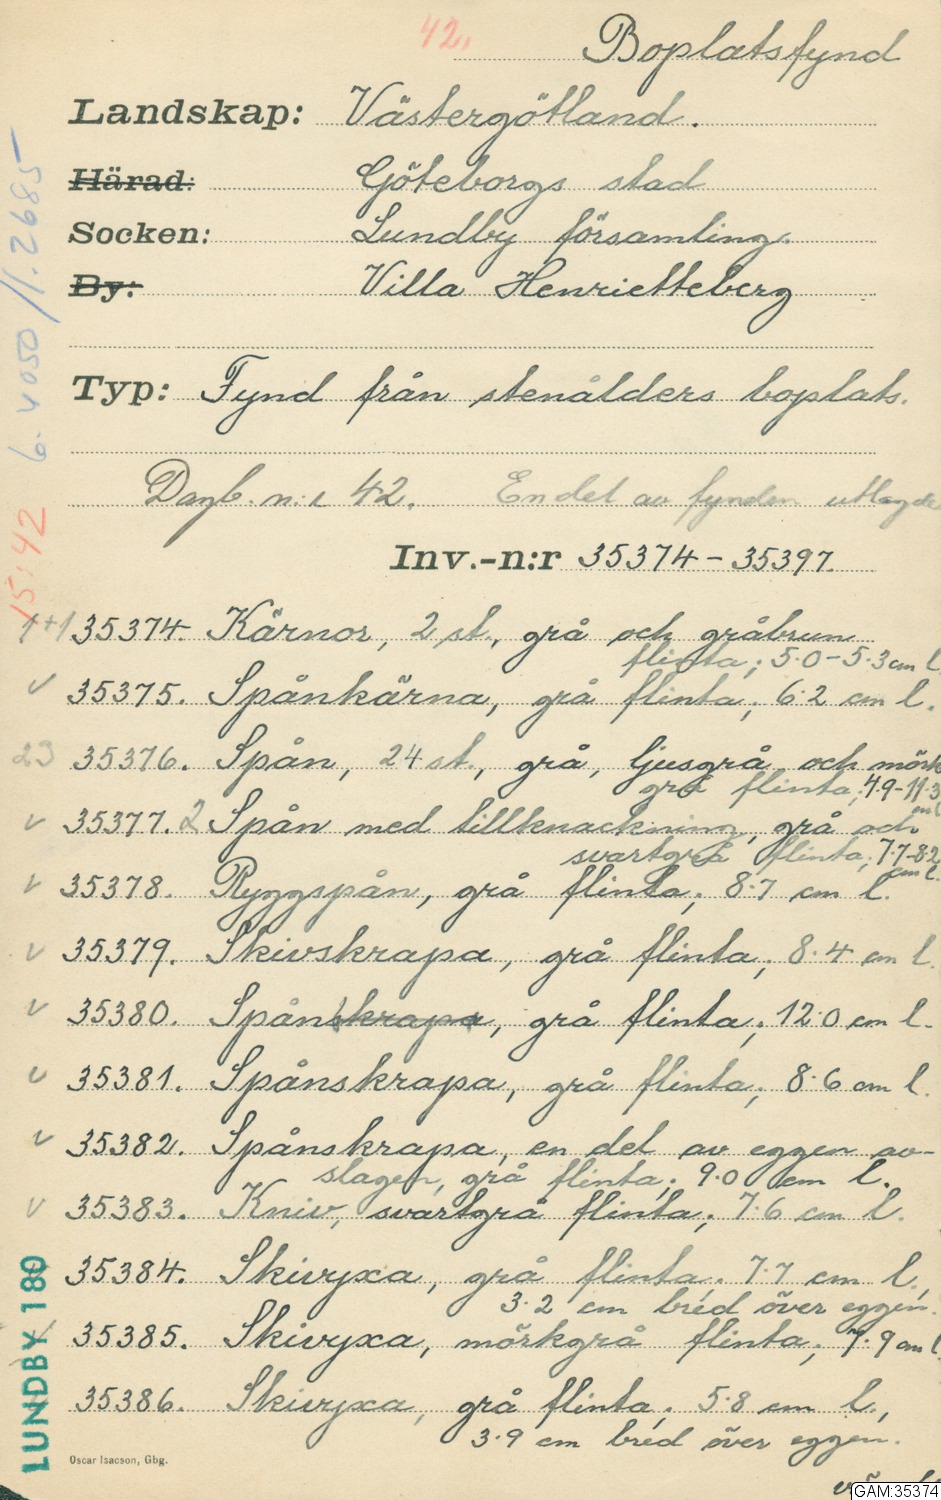 42.
Boplatsfynd
Landskap: Västergötland.
Härad: Göteborgs stad
Socken: Lundby församling.
By: Villa Henrietteberg
Typ: Fynd från stenålders boplats.
Dagb. n:r 42. En del av fynden utlagda
Inv.-n:r 35374 - 35397.
1+1 35374. Kärnor, 2 st., grå och gråbrun
flinta; 5.0-5.3 cm l.
v 35375. Spånkärna, grå flinta; 6.2 cm l.
23 35376. Spån, 24 st., grå, ljusgrå och mörk
grå flinta; 4.9-11.3
cm l
v 35377. 2 Spån med tillknackning, grå och
svartgrå flinta; 7.7-8.2
cm l.
v 35378. Ryggspån, grå flinta; 8.7 cm l.
v 35379. Skivskrapa, grå flinta; 8.4 cm l.
v 35380. Spånskrapa, grå flinta; 12.0 cm l.
v 35381. Spånskrapa, grå flinta; 8.6 cm l.
v 35382. Spånskrapa, en del av eggen av-
slagen, grå flinta; 9.0 cm l.
v 35383. Kniv, svartgrå flinta; 7.6 cm l.
35384. Skivyxa, grå flinta; 7.7 cm l.,
3.2 cm bred över eggen.
35385. Skivyxa, mörkgrå flinta; 7.9 cm l.
35386. Skivyxa, grå flinta; 5.8 cm l.,
3.9 cm bred över eggen.
Oscar Isacson, Gbg.
GAM:35374
15:42
LUNDBY 180